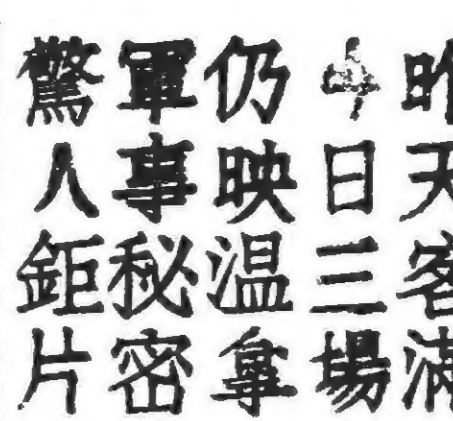 昨天客滿
今日三場
仍映温拿
軍事秘密
驚人鉅片